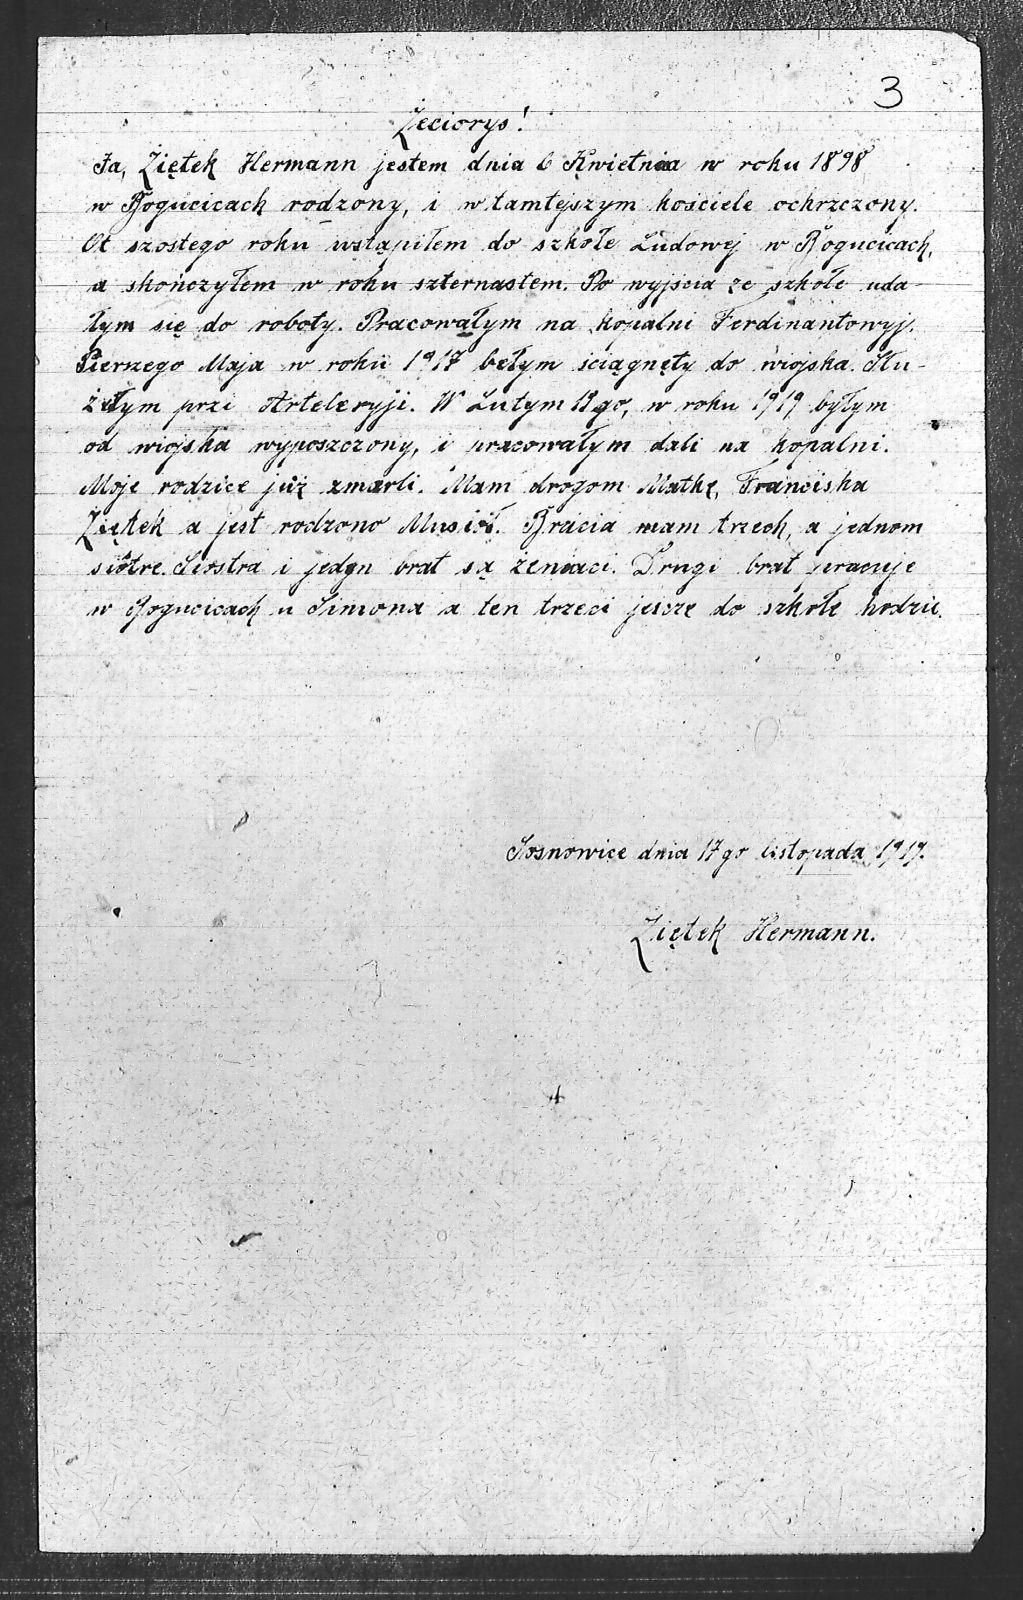 3
Zeciorys!
Ja, Ziętek Hermann jestem dnia 6 Kwietnia w roku 1898
w Bogucicach rodzony, i w tamtejszym kościele ochrzczony.
Ot szostego roku wstąpiłem do szkołe Ludowej w Bogucicach,
a skończyłem w roku szternastem. Po wyjścia ze szkołe uda-
łym się do roboty. Pracowałym na kopalni Ferdinantowyj.
Pierszego Maja w roku 1917 bełym ściągnęty do wiojska. Słu-
żułym przi Arteleryji. W Lutym 19go, w roku 1919 byłym
od wiojska wyposzczony, i pracowałym dali na kopalni.
Moje rodzice już zmarli. Mam drogom Matkę, Franciska
Ziętek a jest rodzono Musioł. Bracia mam trzech, a jednom
siostre. Siostra i jedyn brat są żeniaci. Drugi brat pracuje
w Bogucicach u Simona a ten trzeci jeszcze do szkołe hodzie.
Sosnowice dnia 17go listopada 1919.
Ziętek Hermann.